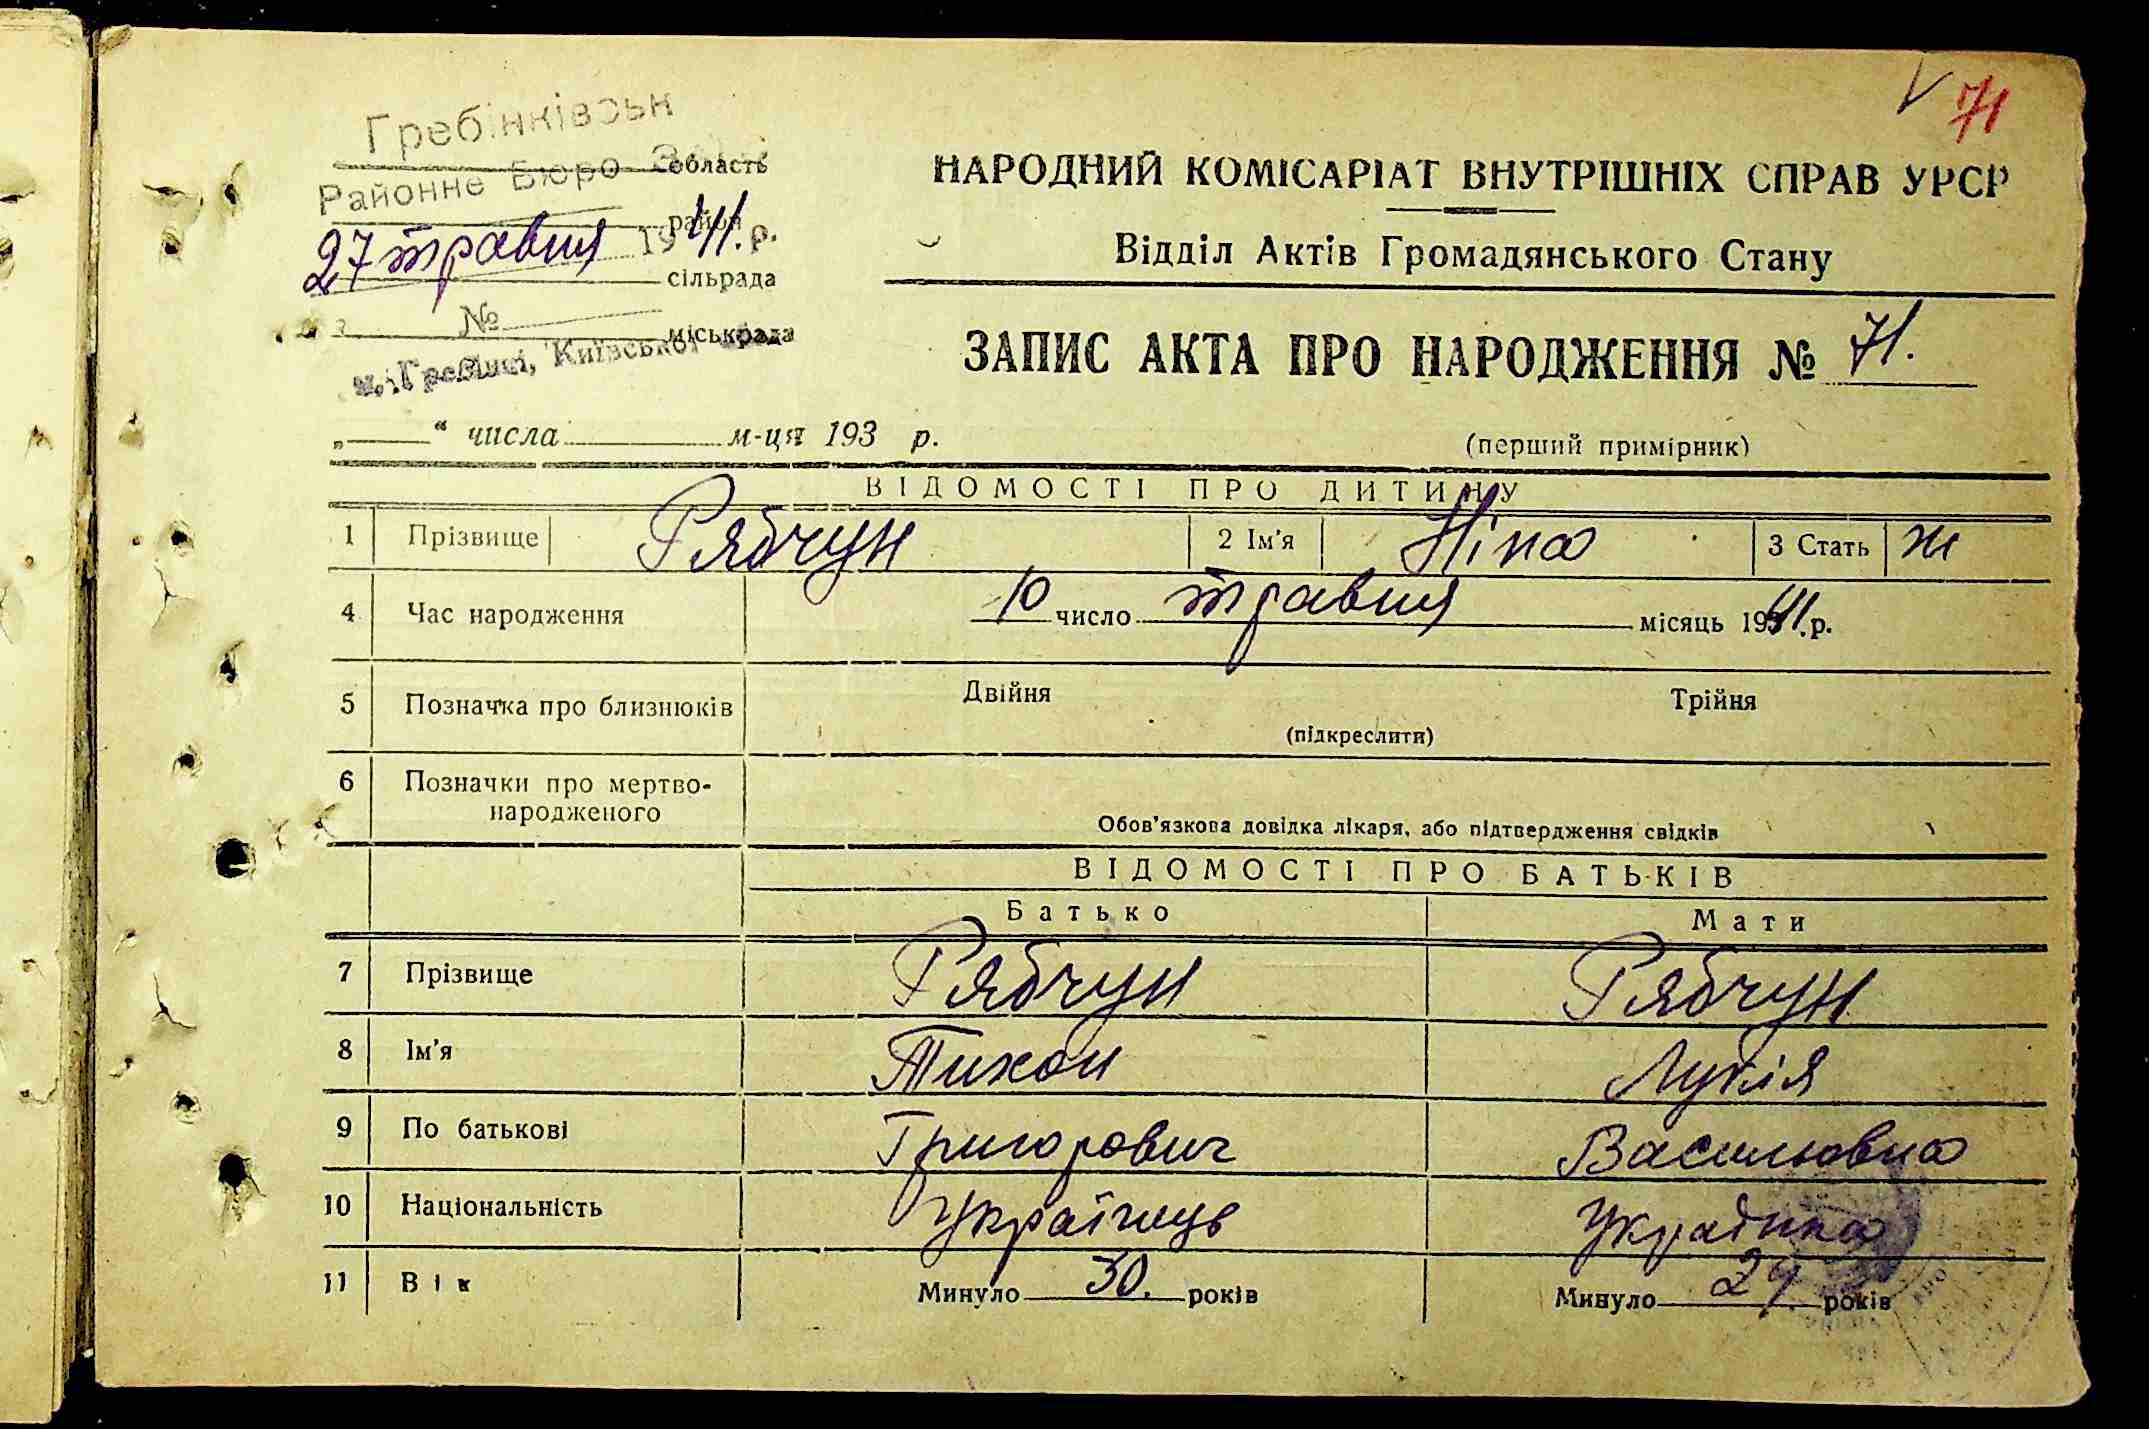 71
Гребінківськ
область
Районне Бюро
район
27 травня 1941. р.
сільрада
№
міськрада
м. Гребінці, Київської
„ “ числа м-ця 193 р.
НАРОДНИЙ КОМІСАРІАТ ВНУТРІШНІХ СПРАВ УРСР
Відділ Актів Громадянського Стану
ЗАПИС АКТА ПРО НАРОДЖЕННЯ № 71.
(перший примірник)
ВІДОМОСТІ ПРО ДИТИНУ
1 Прізвище Рябчун 2 Ім'я Ніна 3 Стать ж
4 Час народження 10 число травня місяць 1941. р.
5 Позначка про близнюків Двійня Трійня
(підкреслити)
6 Позначки про мертво-
народженого
Обов'язкова довідка лікаря, або підтвердження свідків
ВІДОМОСТІ ПРО БАТЬКІВ
Батько Мати
7 Прізвище Рябчун Рябчун
8 Ім'я Тихон
9 По батькові Григорович Василювна
10 Національність Українець Українка
11 Вік Минуло 30. років Минуло 29 років